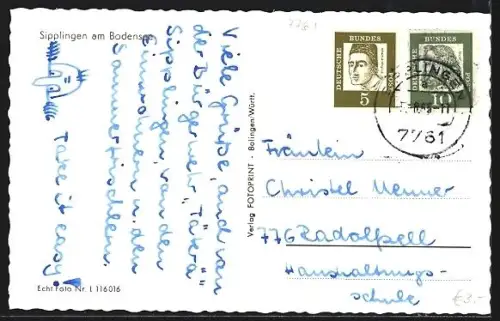 Sipplingen am Bodensee
7761
Viele Grüße, auch von
der Bürgerwehr, "Tätra"
Sipplingen, von den
Einwohnern u. den
Sommerfrischlern.
Take it easy!
Echt Foto Nr. L 116016
Verlag FOTOPRINT · Balingen-Württ.
DEUTSCHE BUNDESPOST
5
DEUTSCHE BUNDESPOST
10
7761
Fräulein
Christel Menner
776 Radolfzell
Haushaltungs-
schule
€3.-